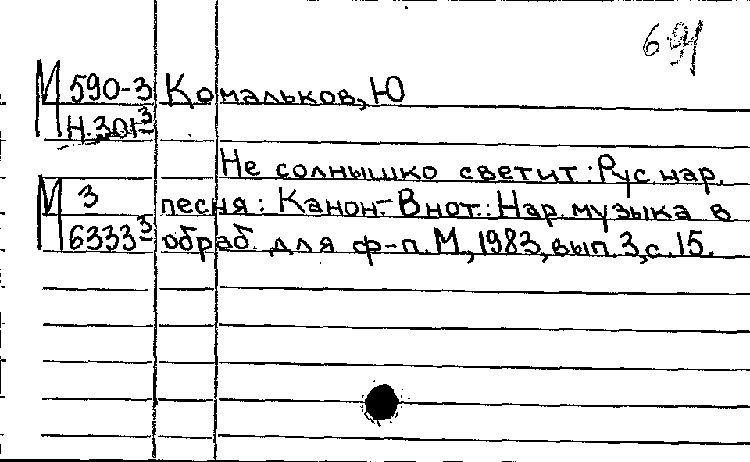 691
М 590-3 Комальков, Ю
Н.301-3
Не солнышко светит: Рус. нар.
М 3 песня: Канон.- В нот.: Нар. музыка в
6333-3 обраб. для ф-п. М., 1983, вып. 3, с. 15.